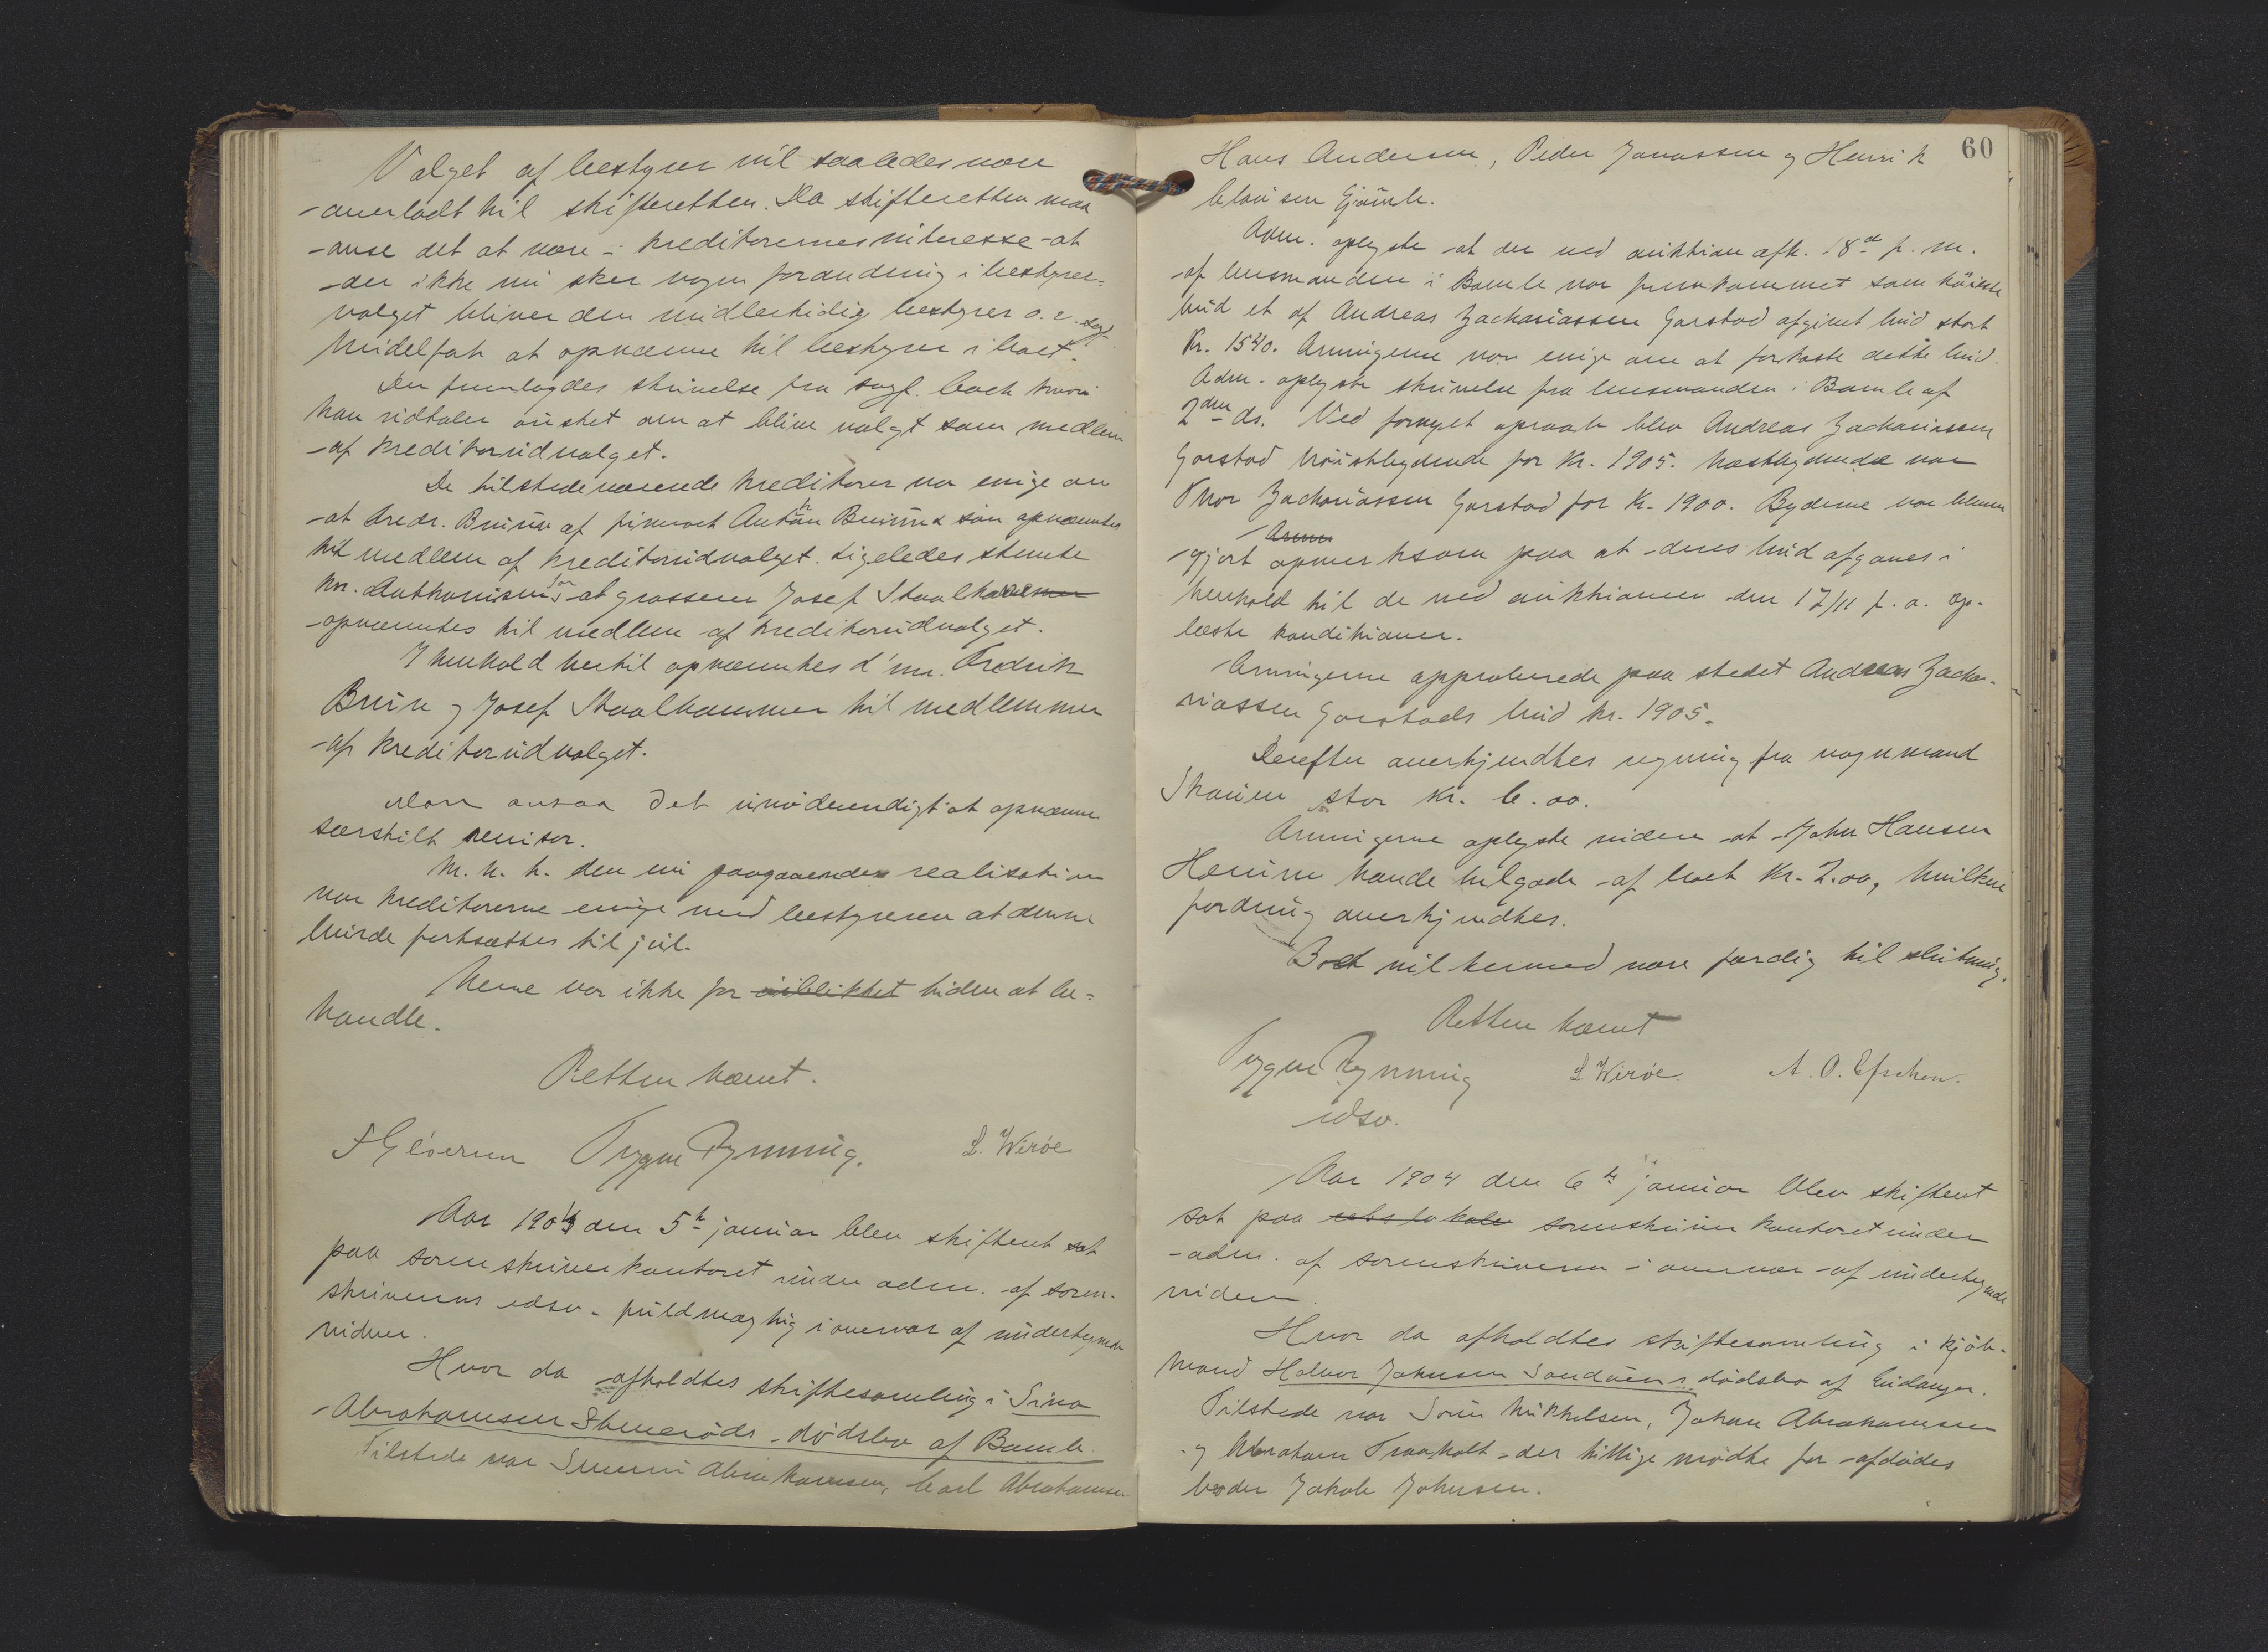 Valget af bestyrer vil saaledes være
overladt til skifteretten. Da skifteretten maa
anse det at være i kreditorernes interesse at
der ikke nu sker nogen forandring i bestyrer-
valget bliver den midlertidig bestyrer o.r.sagf.
Midelfart at opnævne til bestyrer i boet.
Der fremlagdes skrivelse fra sagf. Bach hvori
han udtaler ønsket om at blive valgt som medlem
af kreditorudvalget.
De tilstedeværende kreditorer var enige om
at Fredr. Bruun af firmaet Anton Bruuns søn opnævntes
til medlem af kreditorudvalget. Ligeledes stemte
hr. Anthonisen for at grosserer Josef Staalhammer
opnævntes til medlem af kreditorudvalget.
I henhold hertil opnævntes d'hrr. Fredrik
Bruun og Josef Staalhammer til medlemmer
af kreditorudvalget.
Man ansaa det unødvendigt at opnævne
særskilt revisor.
M. h. t. den nu paagaaende realisation
var kreditorerne enige med bestyreren at denne
burde fortsættes til jul.
Mere var ikke for øieblikket tiden at be-
handle.
Retten hævet.
Trygve Rynning. L. Wirøe
Aar 1904 den 5te januar blev skifteret sat
paa sorenskriverkontoret under adm. af soren-
skriverens edsv. fuldmægtig i overvær af undertegnede
vidner.
Hvor da afholdtes skiftesamling i Sina
Abrahamsen Stenerøds dødsbo af Bamle.
Tilstede var Abrahamsen, Carl Abrahamsen
60
Hans Andersen, Peder Jonassen og Henrik
Clausen Gjømle.
Adm. oplyste at der ved auktion afh. 18de f. m.
af lensmanden i Bamle var fremkommet som høieste
bud et af Andreas Zachariassen Garstad afgivet bud stort
Kr. 1540. Arvingerne var enige om at forkaste dette bud.
Adm. oplyste skrivelse fra lensmanden i Bamle af
2den ds. Ved fornyet opraab blev Andreas Zachariassen
Garstad høistbydende for Kr. 1905. Næstbydende var
Thor Zachariassen Garstad for Kr. 1900. Byderne var bleven
Arvin
gjort opmerksom paa at deres bud afgaves i
henhold til de ved auktionen den 17/11 f. a. op-
læste konditioner.
Arvingerne approberede paa stedet Andreas Zacha-
riassen Garstads bud kr. 1905.
Derefter anerkjendtes regning fra vognmand
Skauen stor Kr. 6.00.
Arvingerne oplyste videre at John Hansen
Hænum havde tilgode af boet Kr. 2.00, hvilken
fordring anerkjendtes.
Boet vil hermed være færdig til slutning.
Retten hævet
Trygve Rynning L. Wirøe. A. O. Efschen.
edsv.
Aar 1904 den 6te januar blev skifteret
sat paa retslokale sorenskriverkontoret under
adm. af sorenskriveren i overvær af undertegnede
vidner.
Hvor da afholdtes skiftesamling i kjøb-
mand Halvor Johnsen Sandøens dødsbo af Eidanger.
Tilstede var Søren Mikkelsen, Johan Abrahamsen
og Abraham Traaholt der tillige mødte for afdødes
broder Jakob Johnsen.